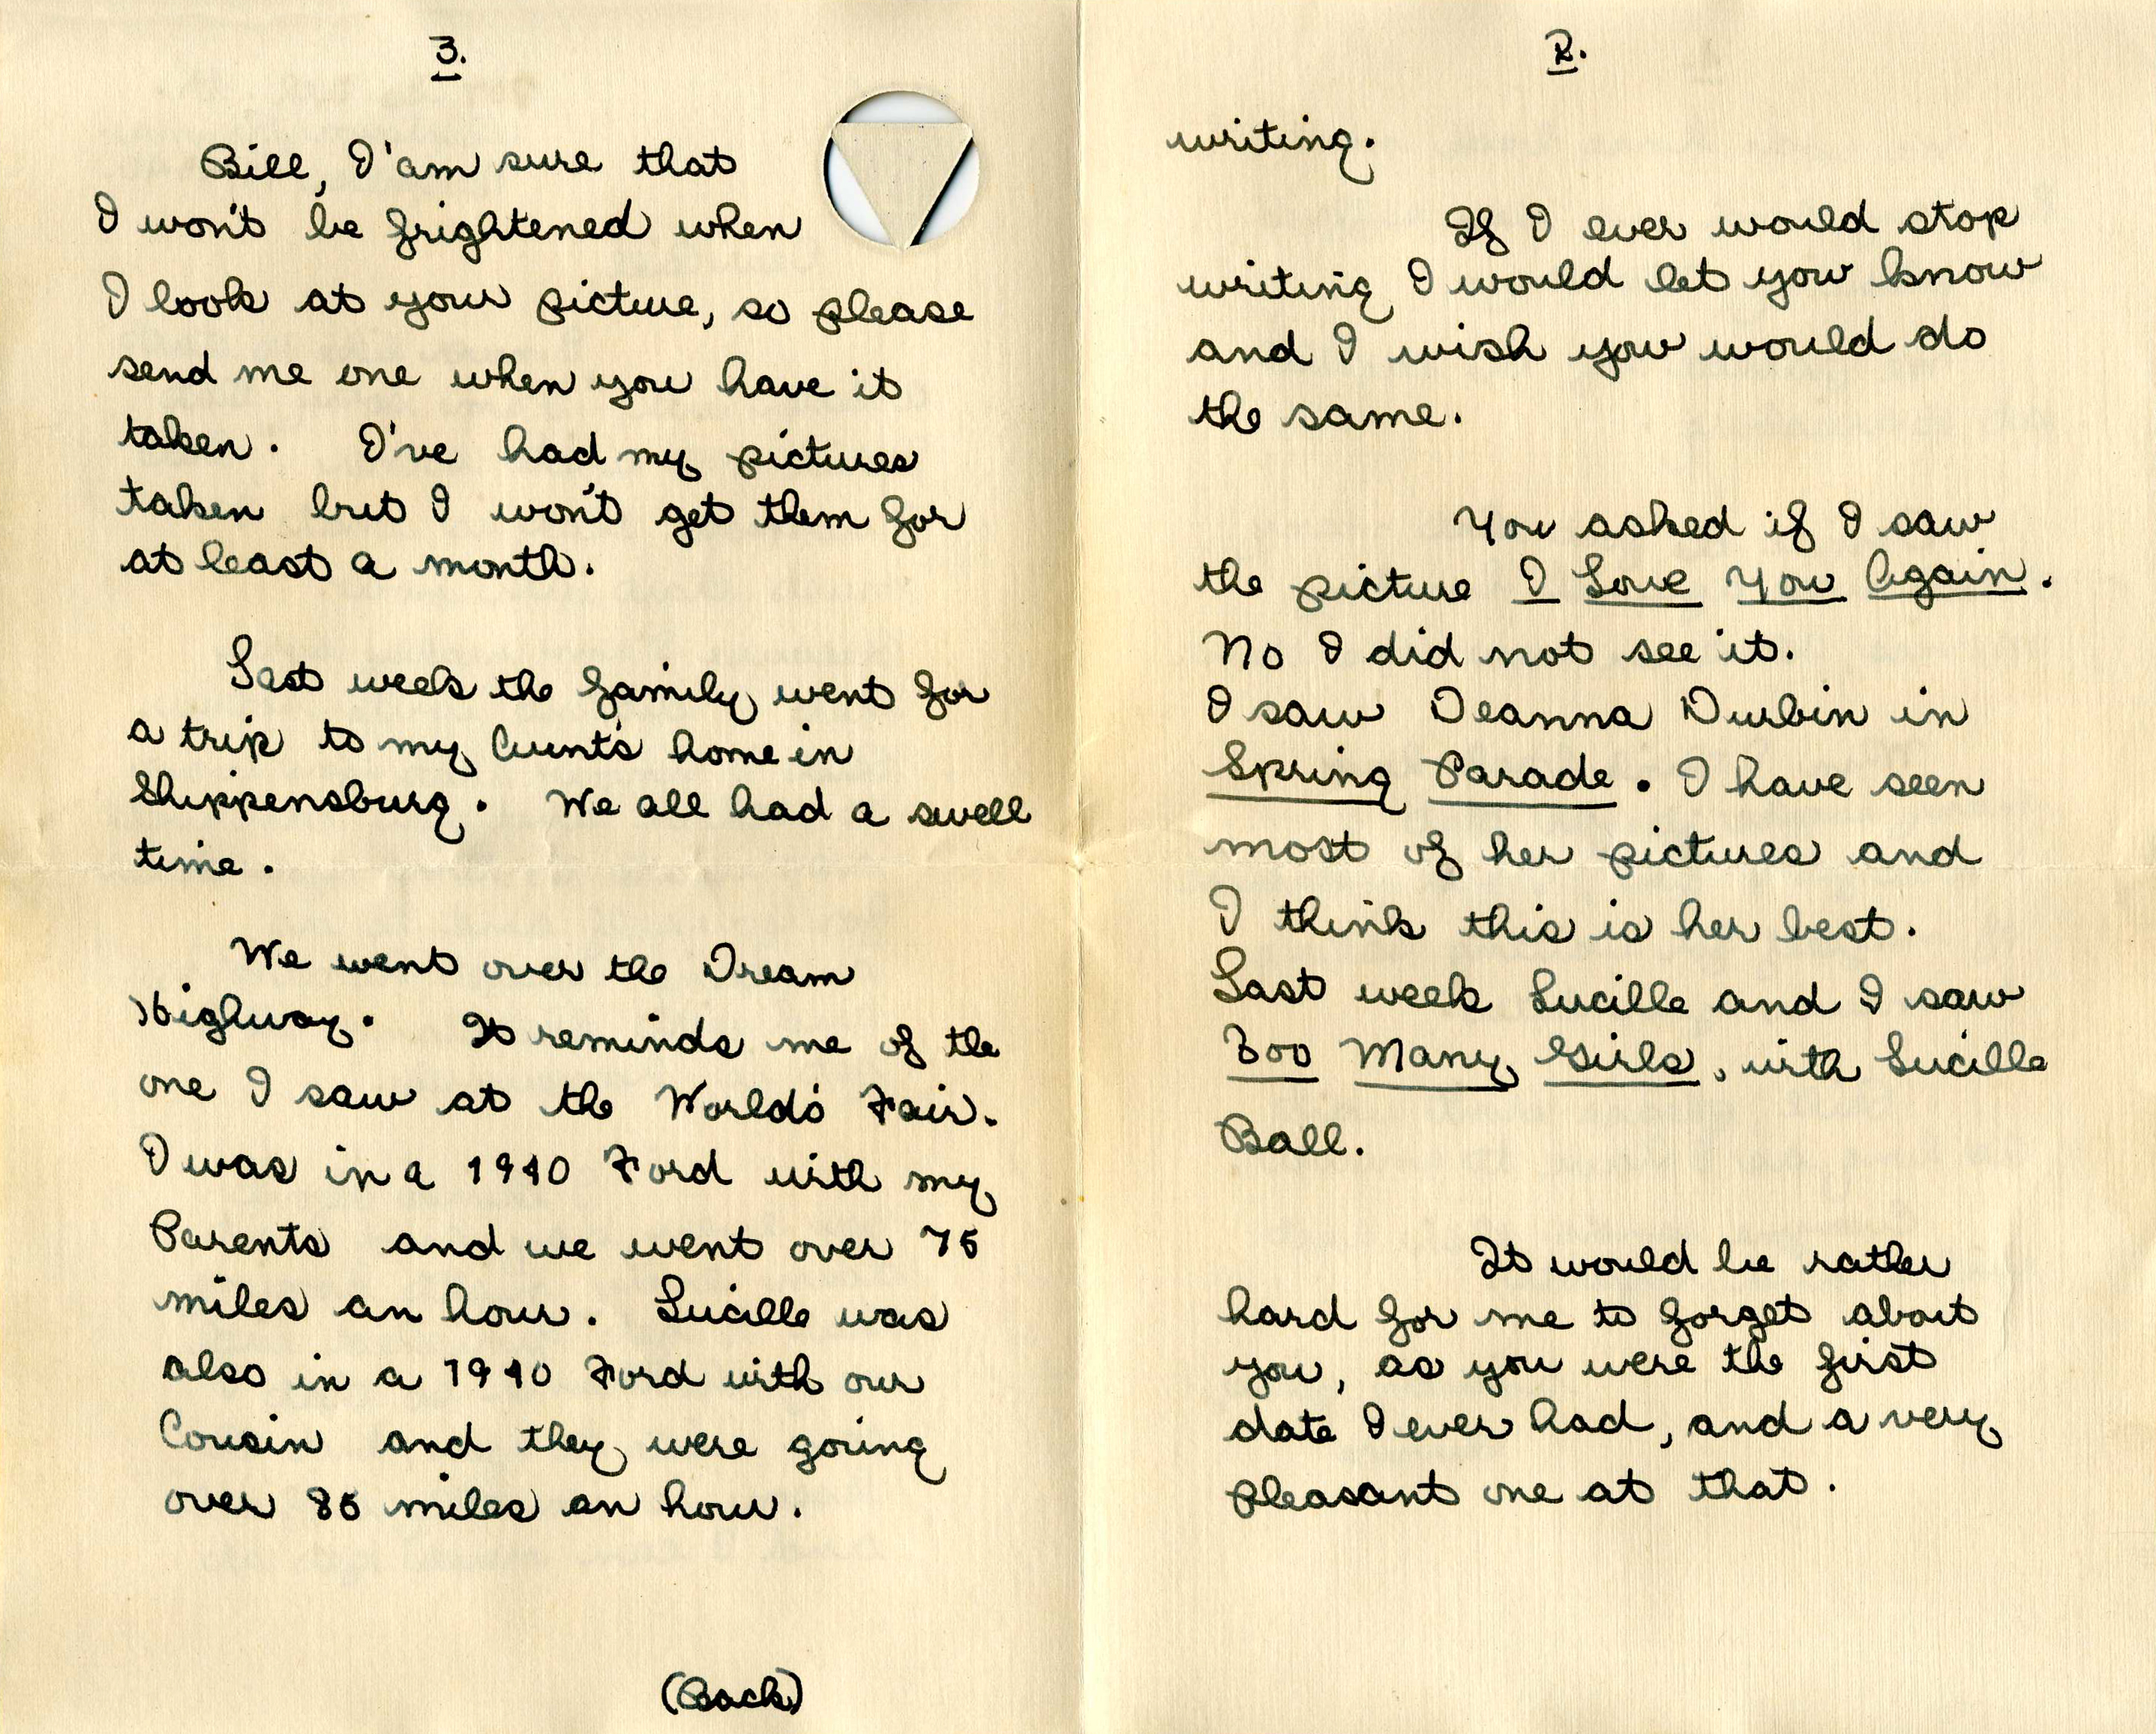 3.
Bill, I'am sure that
I won't be frightened when
I look at your picture, so please
send me one when you have it
taken. I've had my pictures
taken but I won't get them for
at least a month.
Last week the family went for
a trip to my Aunt's home in
Shippensburg. We all had a swell
time.
We went over the Dream
Highway. It reminds me of the
one I saw at the World's Fair.
I was in a 1940 Ford with my
Parents and we went over 75
miles an hour. Lucille was
also in a 1940 Ford with our
Cousin and they were going
over 85 miles an hour.
(Back)
2.
writing.
If I ever would stop
writing I would let you know
and I wish you would do
the same.
You asked if I saw
the picture I Love You Again.
No I did not see it.
I saw Deanna Durbin in
Spring Parade. I have seen
most of her pictures and
I think this is her best.
Last week Lucille and I saw
Too Many Girls, with Lucille
Ball.
It would be rather
hard for me to forget about
you, as you were the first
date I ever had, and a very
pleasant one at that.